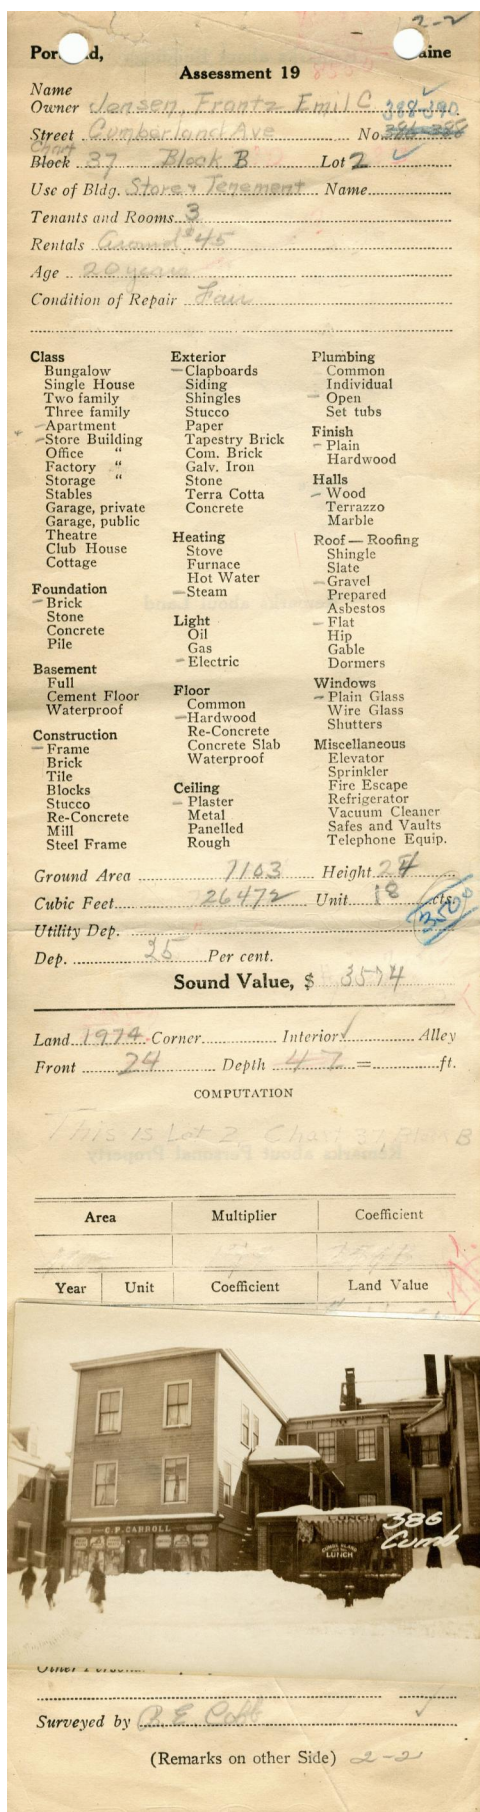 2-2
Portland, Maine
Assessment 19
Name
Owner Jensen, Frantz Emil C 388-390
Street Cumberland Ave No. 386-388
Chart
Block 37 Block B Lot 2
Use of Bldg. Store & Tenement Name
Tenants and Rooms 3
Rentals Around $45
Age 20 years
Condition of Repair Fair
Class
Bungalow
Single House
Two family
Three family
Apartment
Store Building
Office "
Factory "
Storage "
Stables
Garage, private
Garage, public
Theatre
Club House
Cottage
Foundation
Brick
Stone
Concrete
Pile
Basement
Full
Cement Floor
Waterproof
Construction
Frame
Brick
Tile
Blocks
Stucco
Re-Concrete
Mill
Steel Frame
Exterior
Clapboards
Siding
Shingles
Stucco
Paper
Tapestry Brick
Com. Brick
Galv. Iron
Stone
Terra Cotta
Concrete
Heating
Stove
Furnace
Hot Water
Steam
Light
Oil
Gas
Electric
Floor
Common
Hardwood
Re-Concrete
Concrete Slab
Waterproof
Ceiling
Plaster
Metal
Panelled
Rough
Plumbing
Common
Individual
Open
Set tubs
Finish
Plain
Hardwood
Halls
Wood
Terrazzo
Marble
Roof — Roofing
Shingle
Slate
Gravel
Prepared
Asbestos
Flat
Hip
Gable
Dormers
Windows
Plain Glass
Wire Glass
Shutters
Miscellaneous
Elevator
Sprinkler
Fire Escape
Refrigerator
Vacuum Cleaner
Safes and Vaults
Telephone Equip.
Ground Area 1103 Height 24
Cubic Feet 26472 Unit 18 cts.
3500
Utility Dep.
Dep. 25 Per cent.
Sound Value, $ 3574
Land 1974 Corner Interior Alley
Front 24 Depth 47 = ft.
COMPUTATION
This is Lot 2, Chart 37, Block B
Area Multiplier Coefficient
Year Unit Coefficient Land Value
C.P. CARROLL
LUNCH
386
Cumb
Surveyed by B.E. Cobb
(Remarks on other Side) 2-2